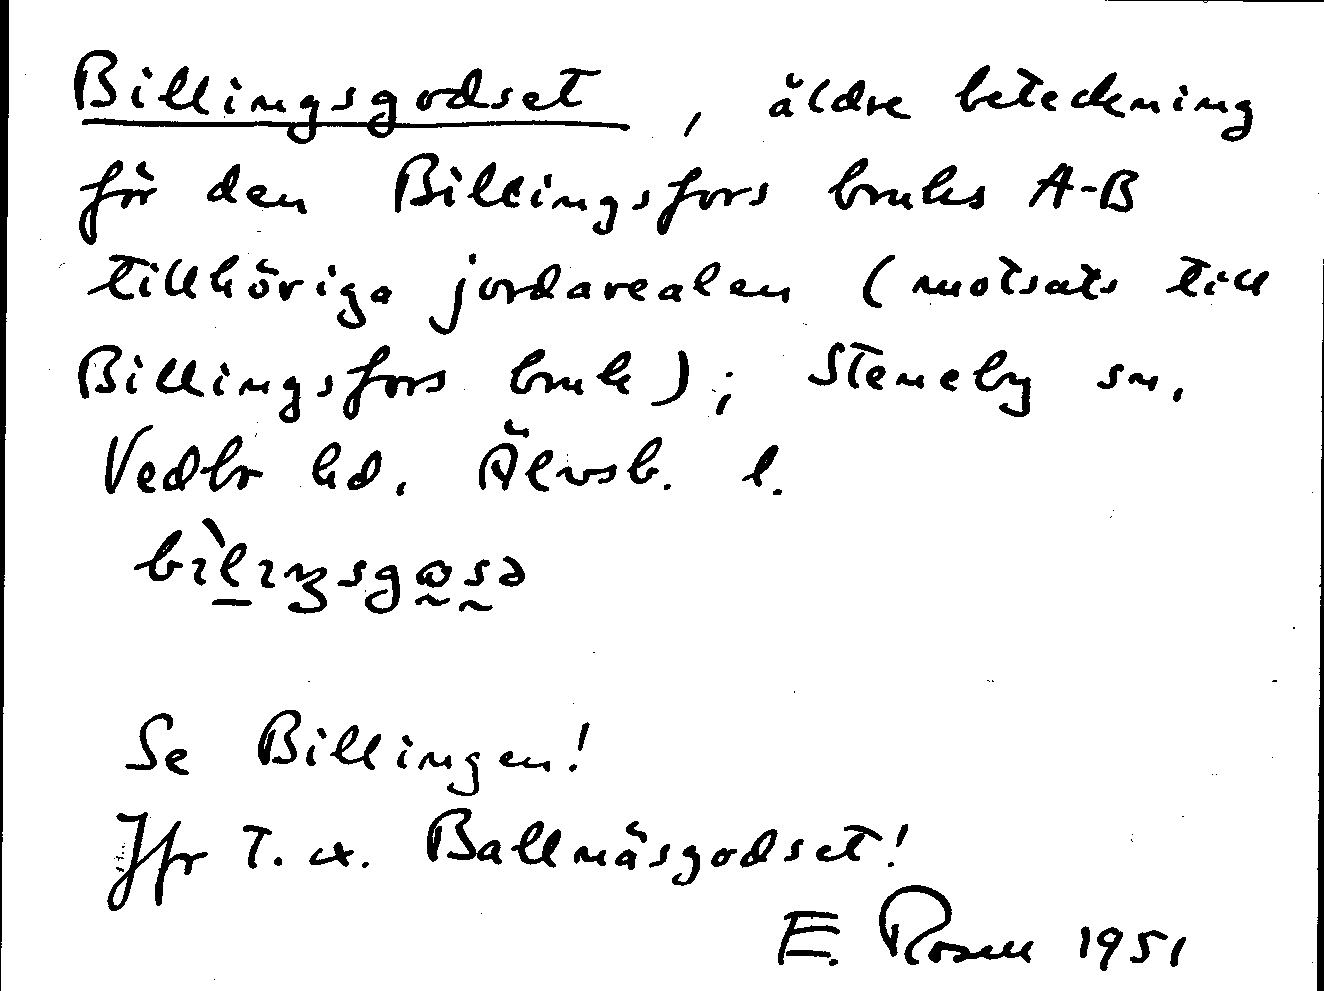 Billingsgodset, äldre beteckning
för den Billingsfors bruks A-B
tillhöriga jordarealen (motsats till
Billingsfors bruk); Steneby sn,
Vedbr hd, Älvsb. l.
Se Billingen!
Jfr t. ex. Ballnäsgodset!
E. Rosell 1951